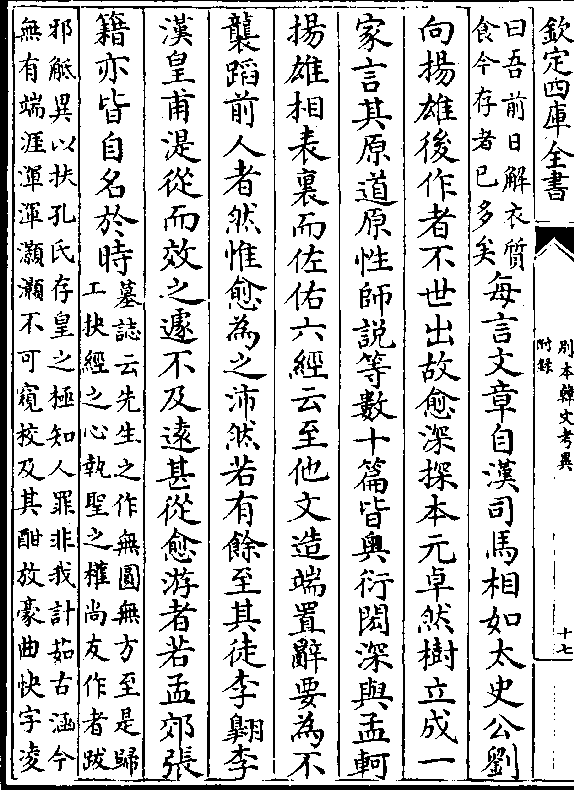 欽定四庫全書
別本韓文考異
附錄
十七
曰吾前日解衣質
食今存者已多矣
每言文章自漢司馬相如太史公劉
向揚雄後作者不世出故愈深探本元卓然樹立成一
家言其原道原性師說等數十篇皆奥衍閎深與孟軻
揚雄相表裏而佐佑六經云至他文造端置辭要為不
襲蹈前人者然惟愈為之沛然若有餘至其徒李翺李
漢皇甫湜從而效之遽不及逺甚從愈游者若孟郊張
籍亦皆自名於時
墓誌云先生之作無圓無方至是歸
工抉經之心執聖之權尚友作者跋
邪觝異以扶孔氏存皇之極知人罪非我計茹古涵今
無有端涯渾渾灝灝不可窺校及其酣放豪曲快字凌